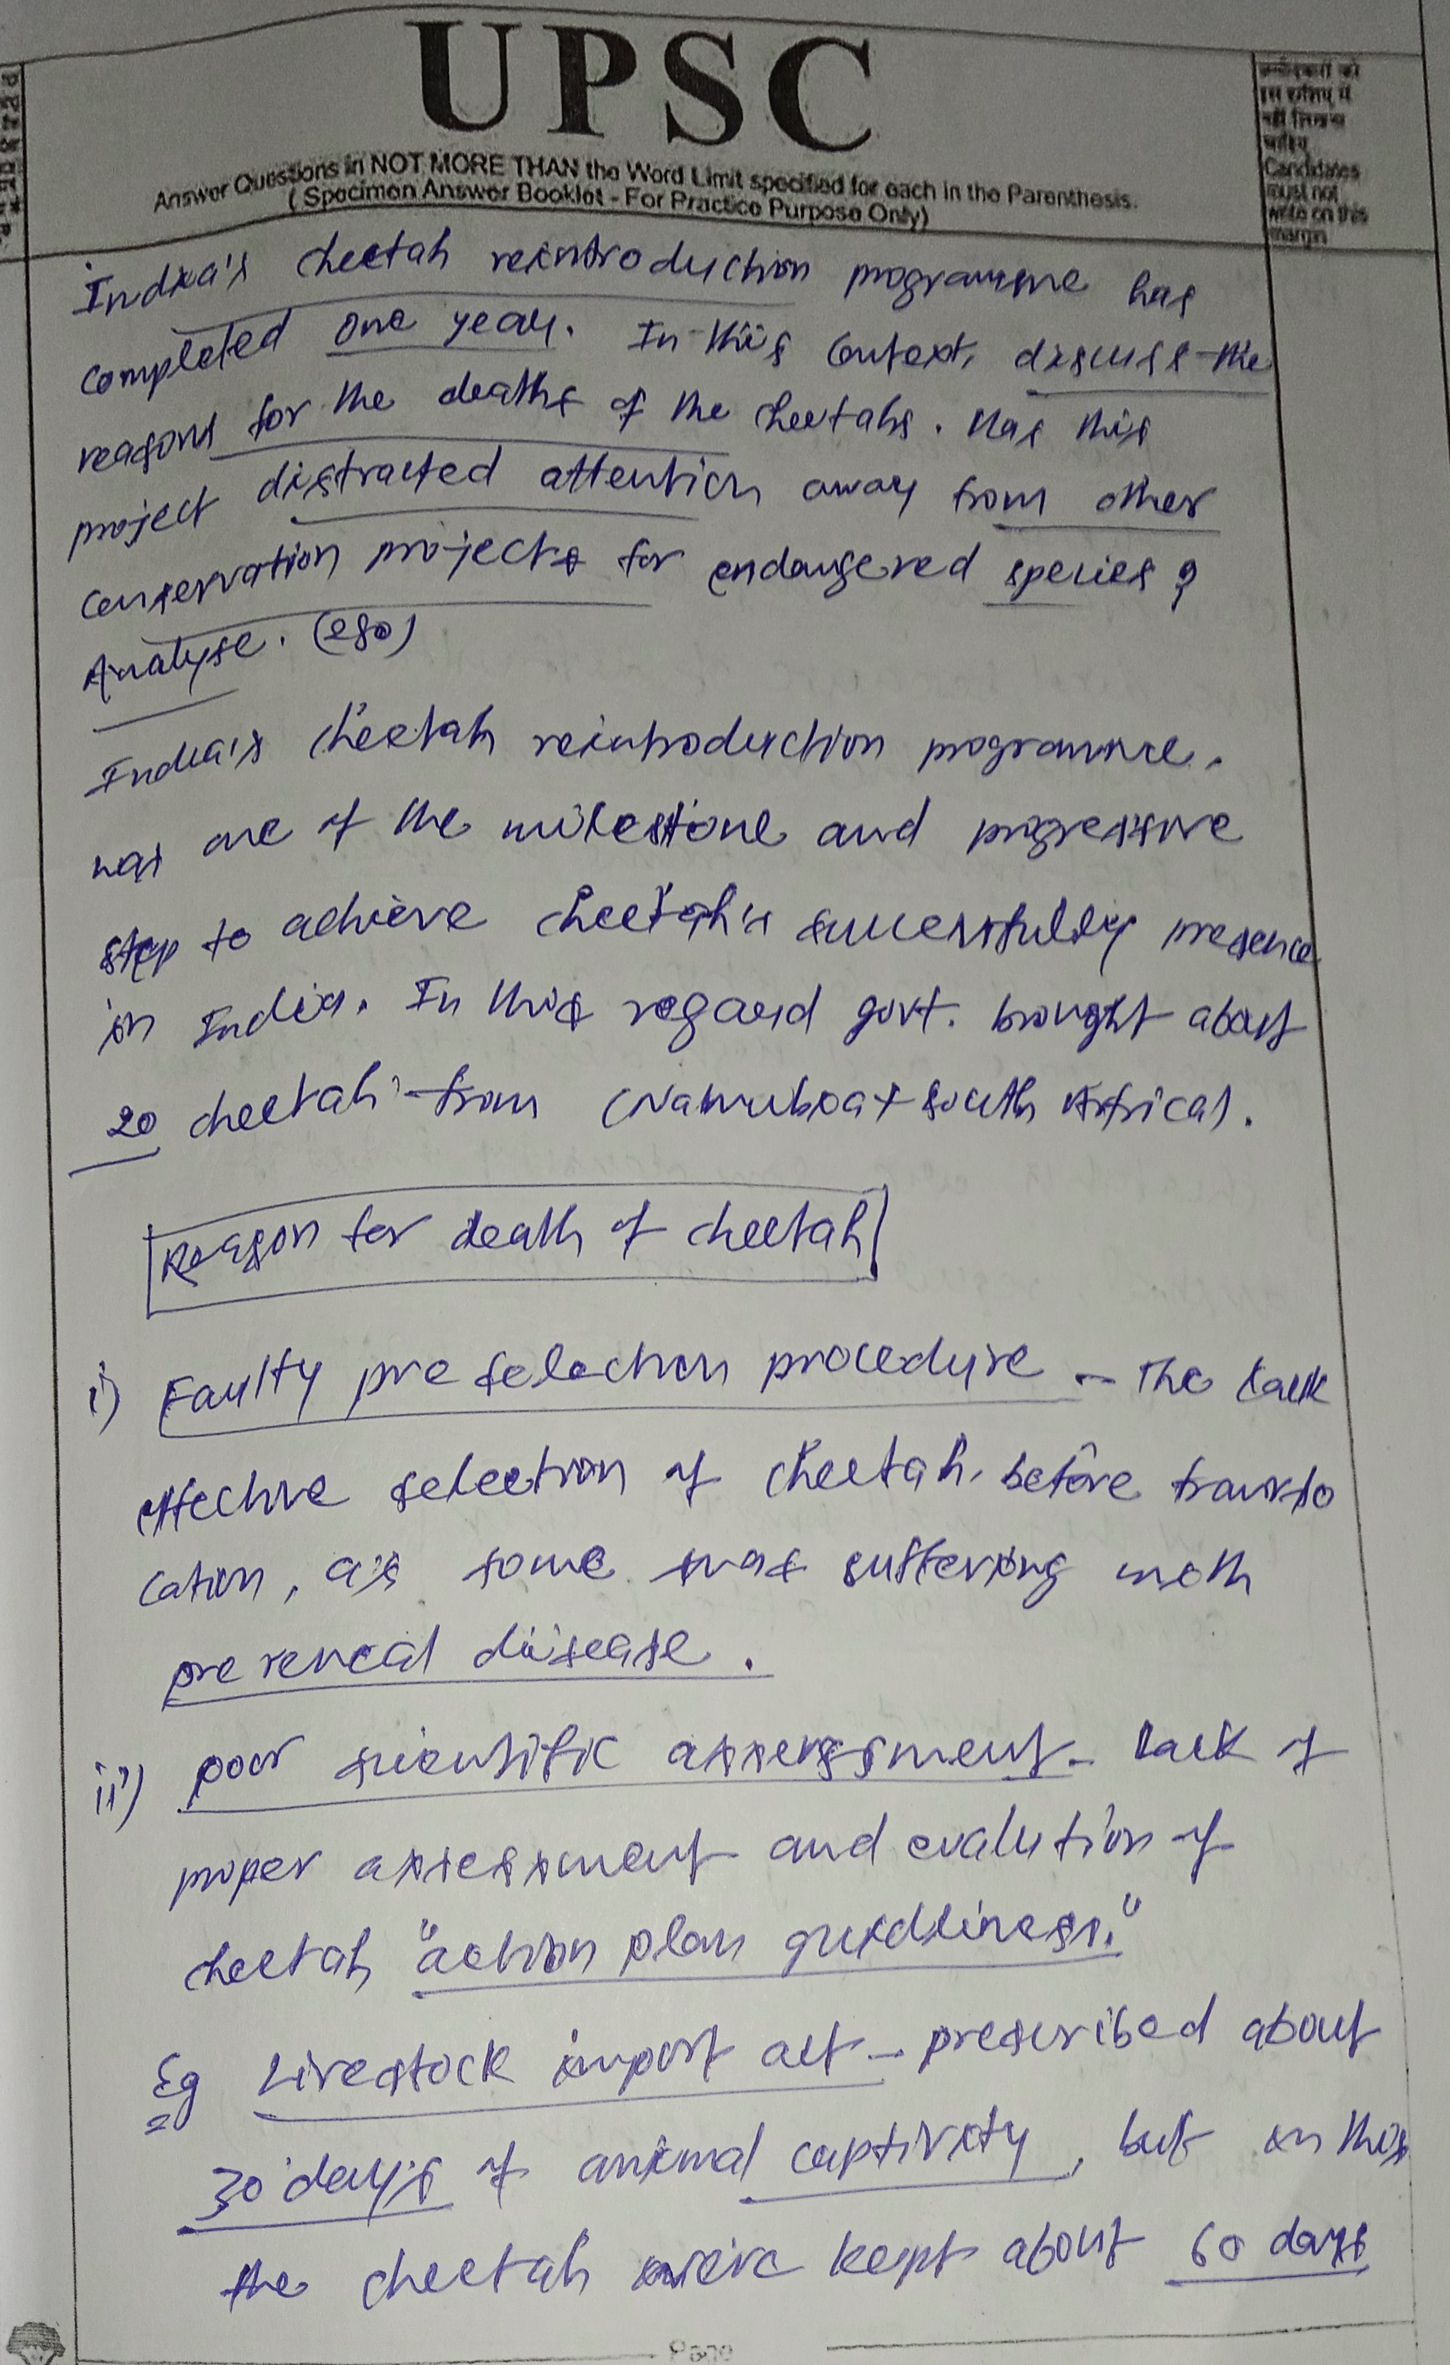 UPSC
Answer Questions in NOT MORE THAN the Word Limit specified for each in the Parenthesis.
( Specimen Answer Booklet - For Practice Purpose Only)
उम्मीदवारों को
इस हाशिए में
नहीं लिखना
चाहिए
Candidates
must not
write on this
margin
India's cheetah reintroduction programme has
completed one year. In this context, discuss the
reasons for the deaths of the cheetahs. Has this
project distracted attention away from other
conservation projects for endangered species ?
Analyse. (250)
India's cheetah reintroduction programme.
was one of the milestone and progressive
step to achieve cheetah's successfully presence
in India. In this regard govt. brought about
20 cheetah from (Namubia + South Africa).
Reason for death of cheetah
i) Faulty pre selection procedure - The lack
effective selection of cheetah, before translo
cation, as some was suffering with
pre reneal disease.
ii) poor scientific assessment - lack of
proper assessment and evalution of
cheetah "action plan guidliness."
Eg Livestock import act - prescribed about
30 days of animal captivity, but in this
the cheetah were kept about 60 days
Page